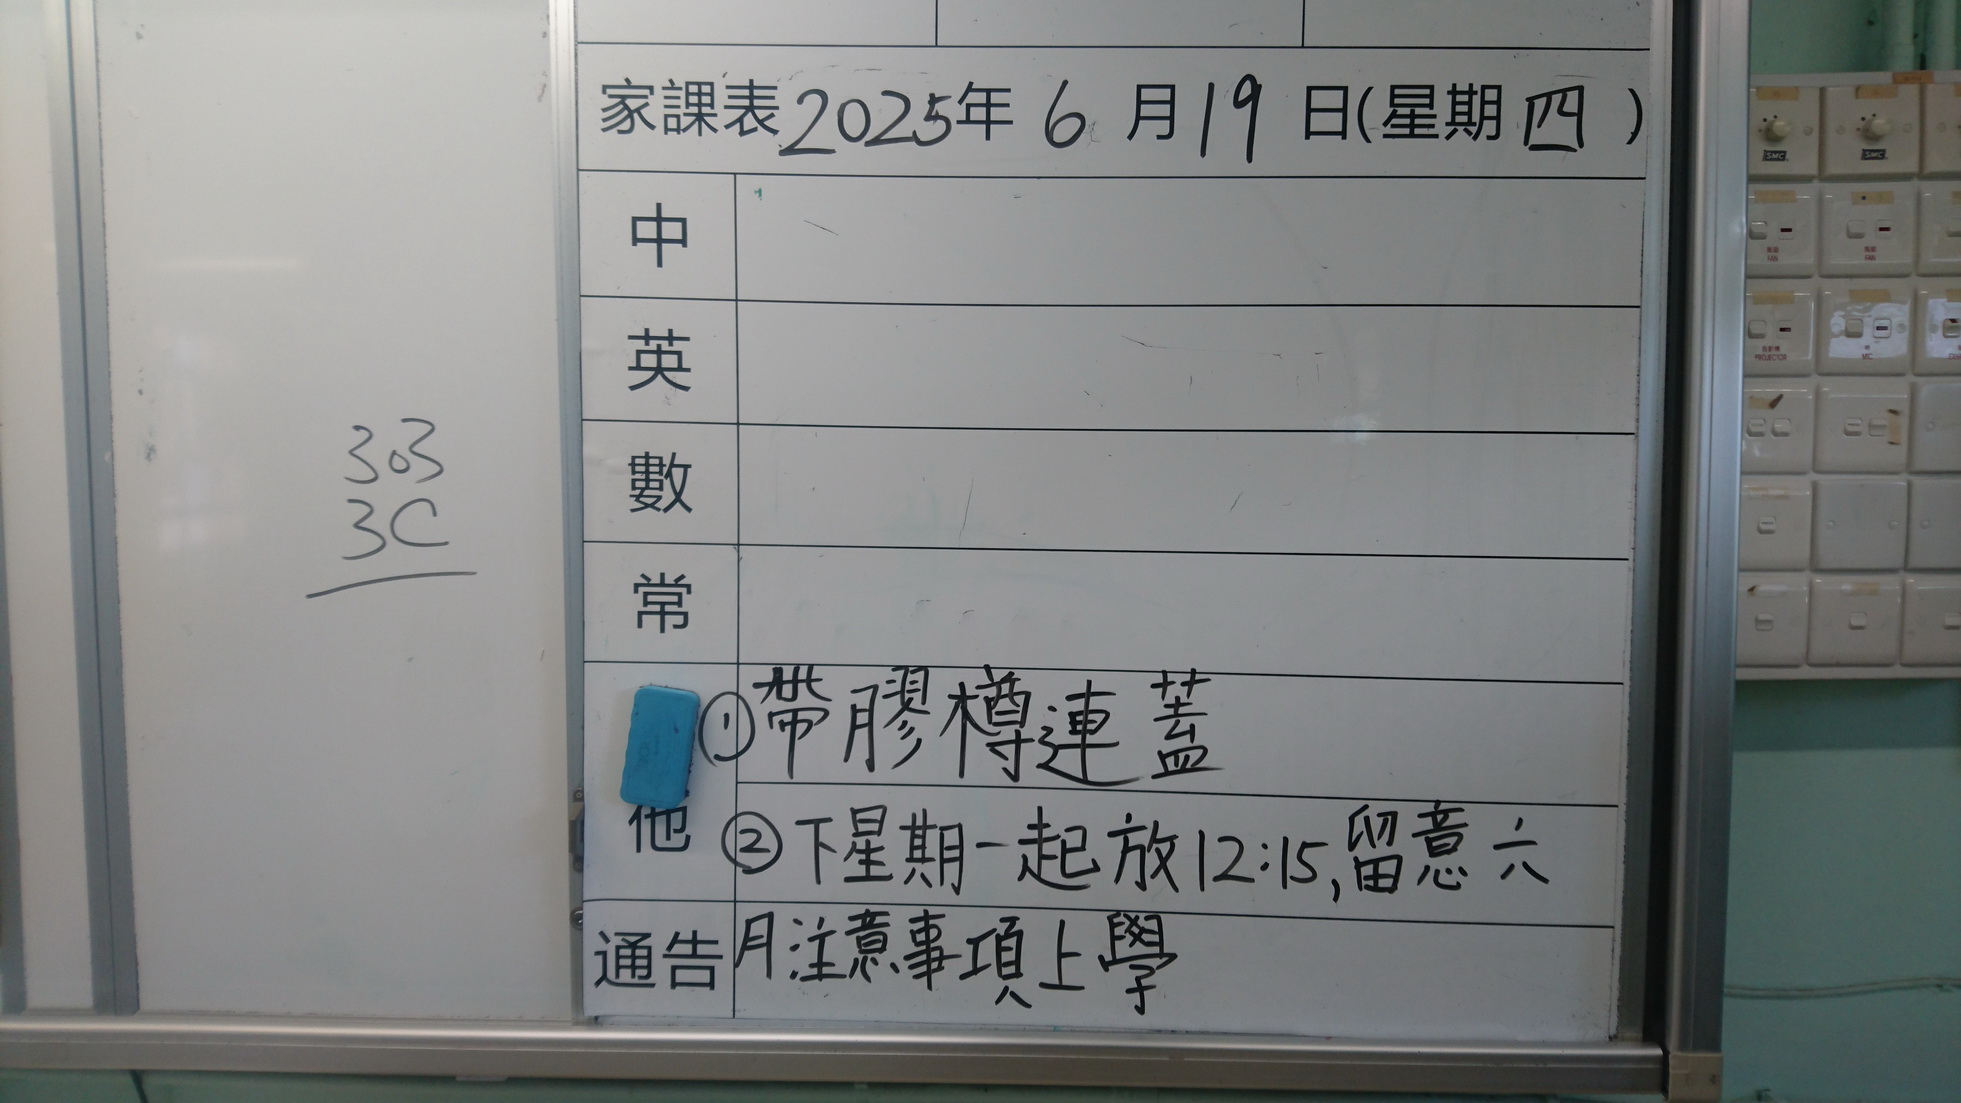 303
3C
家課表2025年 6 月19 日(星期四)
中
英
數
常
①帶膠樽連蓋
他
②下星期一起放12:15,留意六
通告
月注意事項上學
SMC
SMC
FAN
FAN
PROJECTOR
MIC